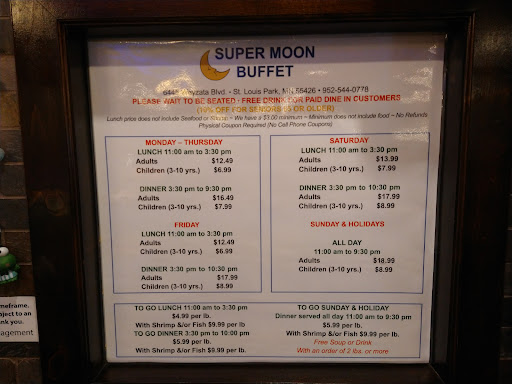 SUPER MOON
BUFFET
Wayzata Blvd. - St. Louis Park, MN 55426 • 952-544-0778
PLEASE WAIT TO BE SEATED - FREE DRINK FOR PAID DINE IN CUSTOMERS
(10% OFF FOR SENIORS 60 OR OLDER)
Lunch price does not include Seafood or Sushi ~ We have a $3.00 minimum ~ Minimum does not include food ~ No Refunds
Physical Coupon Required (No Cell Phone Coupons)
MONDAY – THURSDAY
LUNCH 11:00 am to 3:30 pm
Adults $12.49
Children (3-10 yrs.) $6.99
DINNER 3:30 pm to 9:30 pm
Adults $16.49
Children (3-10 yrs.) $7.99
FRIDAY
LUNCH 11:00 am to 3:30 pm
Adults $12.49
Children (3-10 yrs.) $6.99
DINNER 3:30 pm to 10:30 pm
Adults $17.99
Children (3-10 yrs.) $8.99
SATURDAY
LUNCH 11:00 am to 3:30 pm
Adults $13.99
Children (3-10 yrs.) $7.99
DINNER 3:30 pm to 10:30 pm
Adults $17.99
Children (3-10 yrs.) $8.99
SUNDAY & HOLIDAYS
ALL DAY
11:00 am to 9:30 pm
Adults $18.99
Children (3-10 yrs.) $8.99
TO GO LUNCH 11:00 am to 3:30 pm
$4.99 per lb.
With Shrimp &/or Fish $9.99 per lb
TO GO DINNER 3:30 pm to 10:00 pm
$5.99 per lb.
With Shrimp &/or Fish $9.99 per lb.
TO GO SUNDAY & HOLIDAY
Dinner served all day 11:00 am to 9:30 pm
$5.99 per lb.
With Shrimp &/or Fish $9.99 per lb.
Free Soup or Drink
With an order of 2 lbs. or more
meframe.
bject to an
nk you.
agement